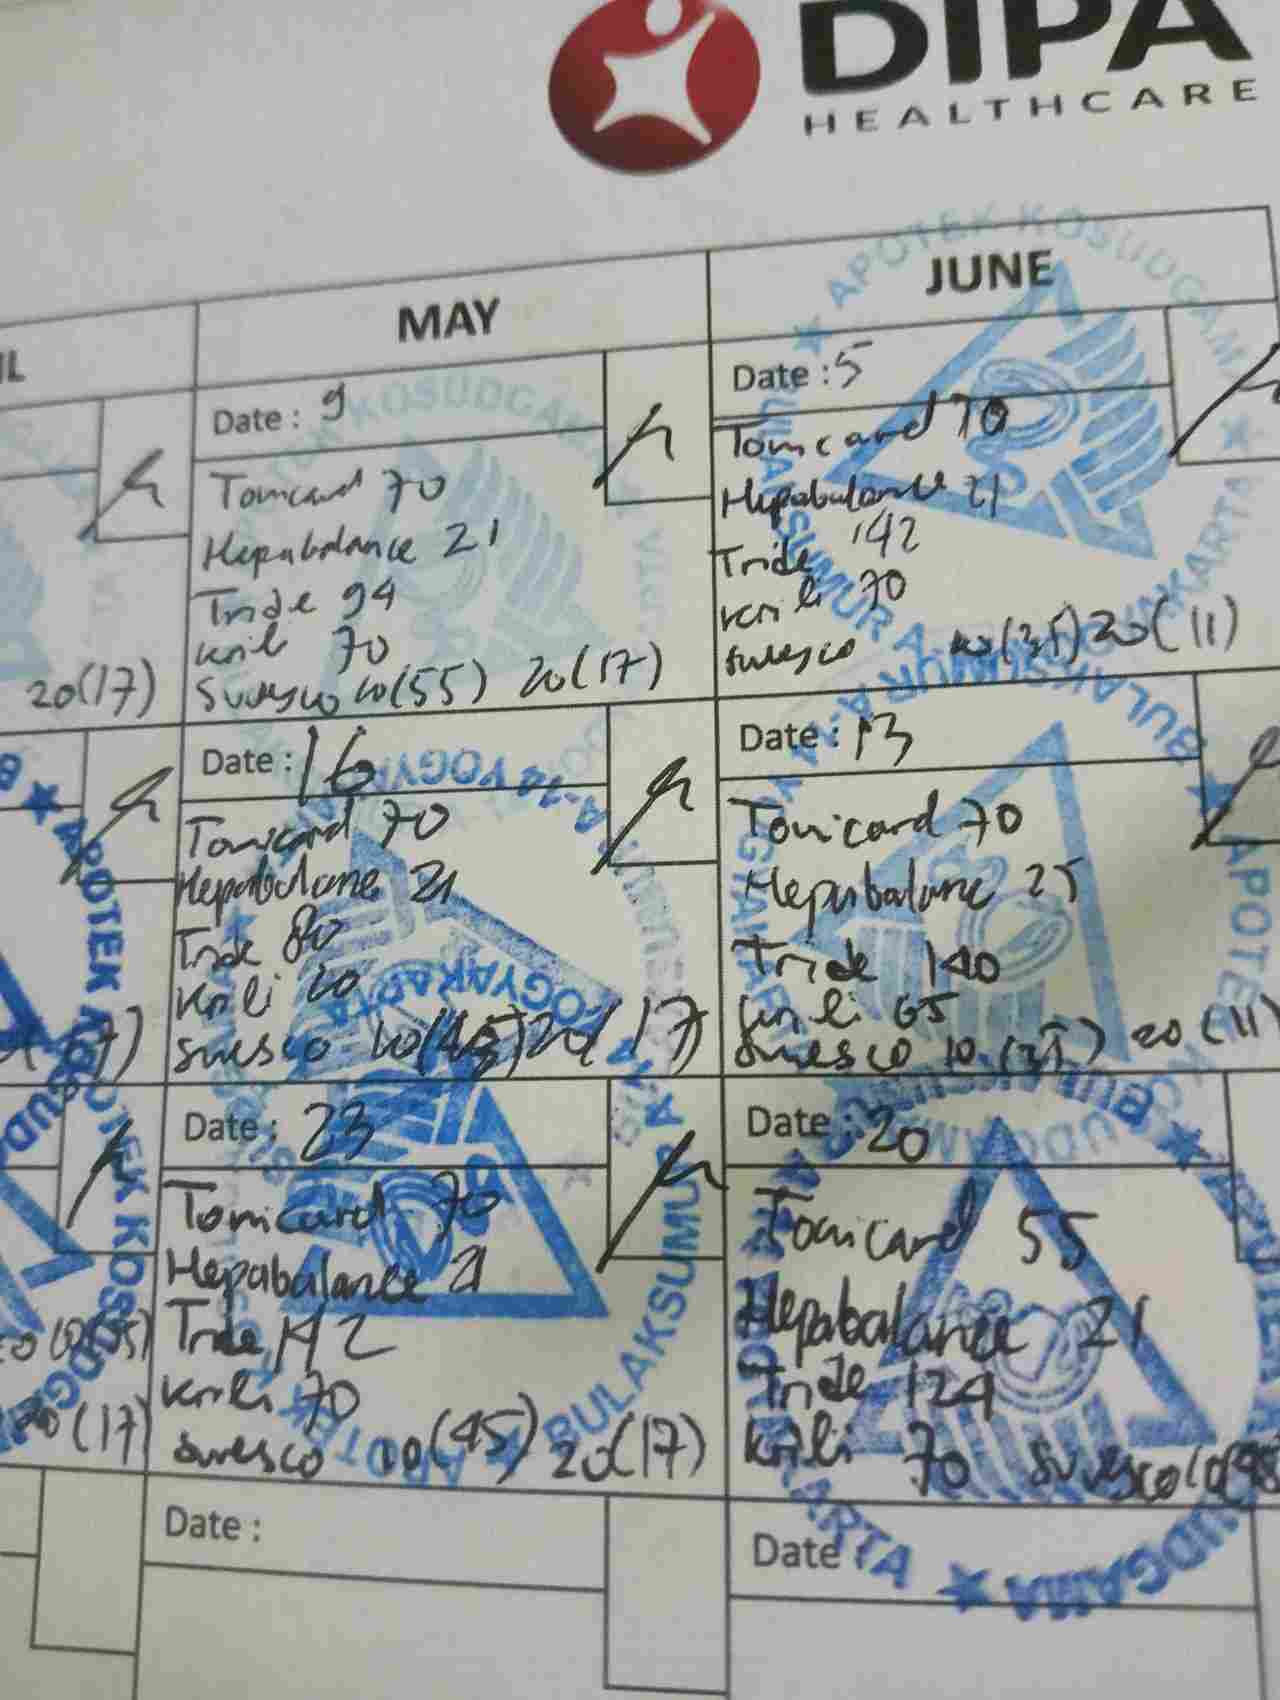 DIPA
HEALTHCARE
MAY
JUNE
Date: 9
Tomicard 70
Hepabalance 21
Tride 94
Krili 70
Suvesco 10(55) 20(17)
Date: 16
Tomicard 70
Hepabalance 21
Tride 80
Krili 60
Suvesco 10(45) 20(17)
Date: 23
Tomicard 70
Hepabalance 21
Tride 142
Krili 70
Suvesco 10(45) 20(17)
Date:
Date: 5
Tomicard 70
Hepabalance 21
Tride 142
Krili 70
Suvesco 10(35) 20(11)
Date: 13
Tomicard 70
Hepabalance 25
Tride 140
Krili 65
Suvesco 10(35) 20(11)
Date: 20
Tomicard 55
Hepabalance 21
Tride 124
Krili 70 Suvesco 10(98
Date:
20(17)
20(17)
APOTEK KOSUDGAMA
BULAKSUMUR A-14 YOGYAKARTA